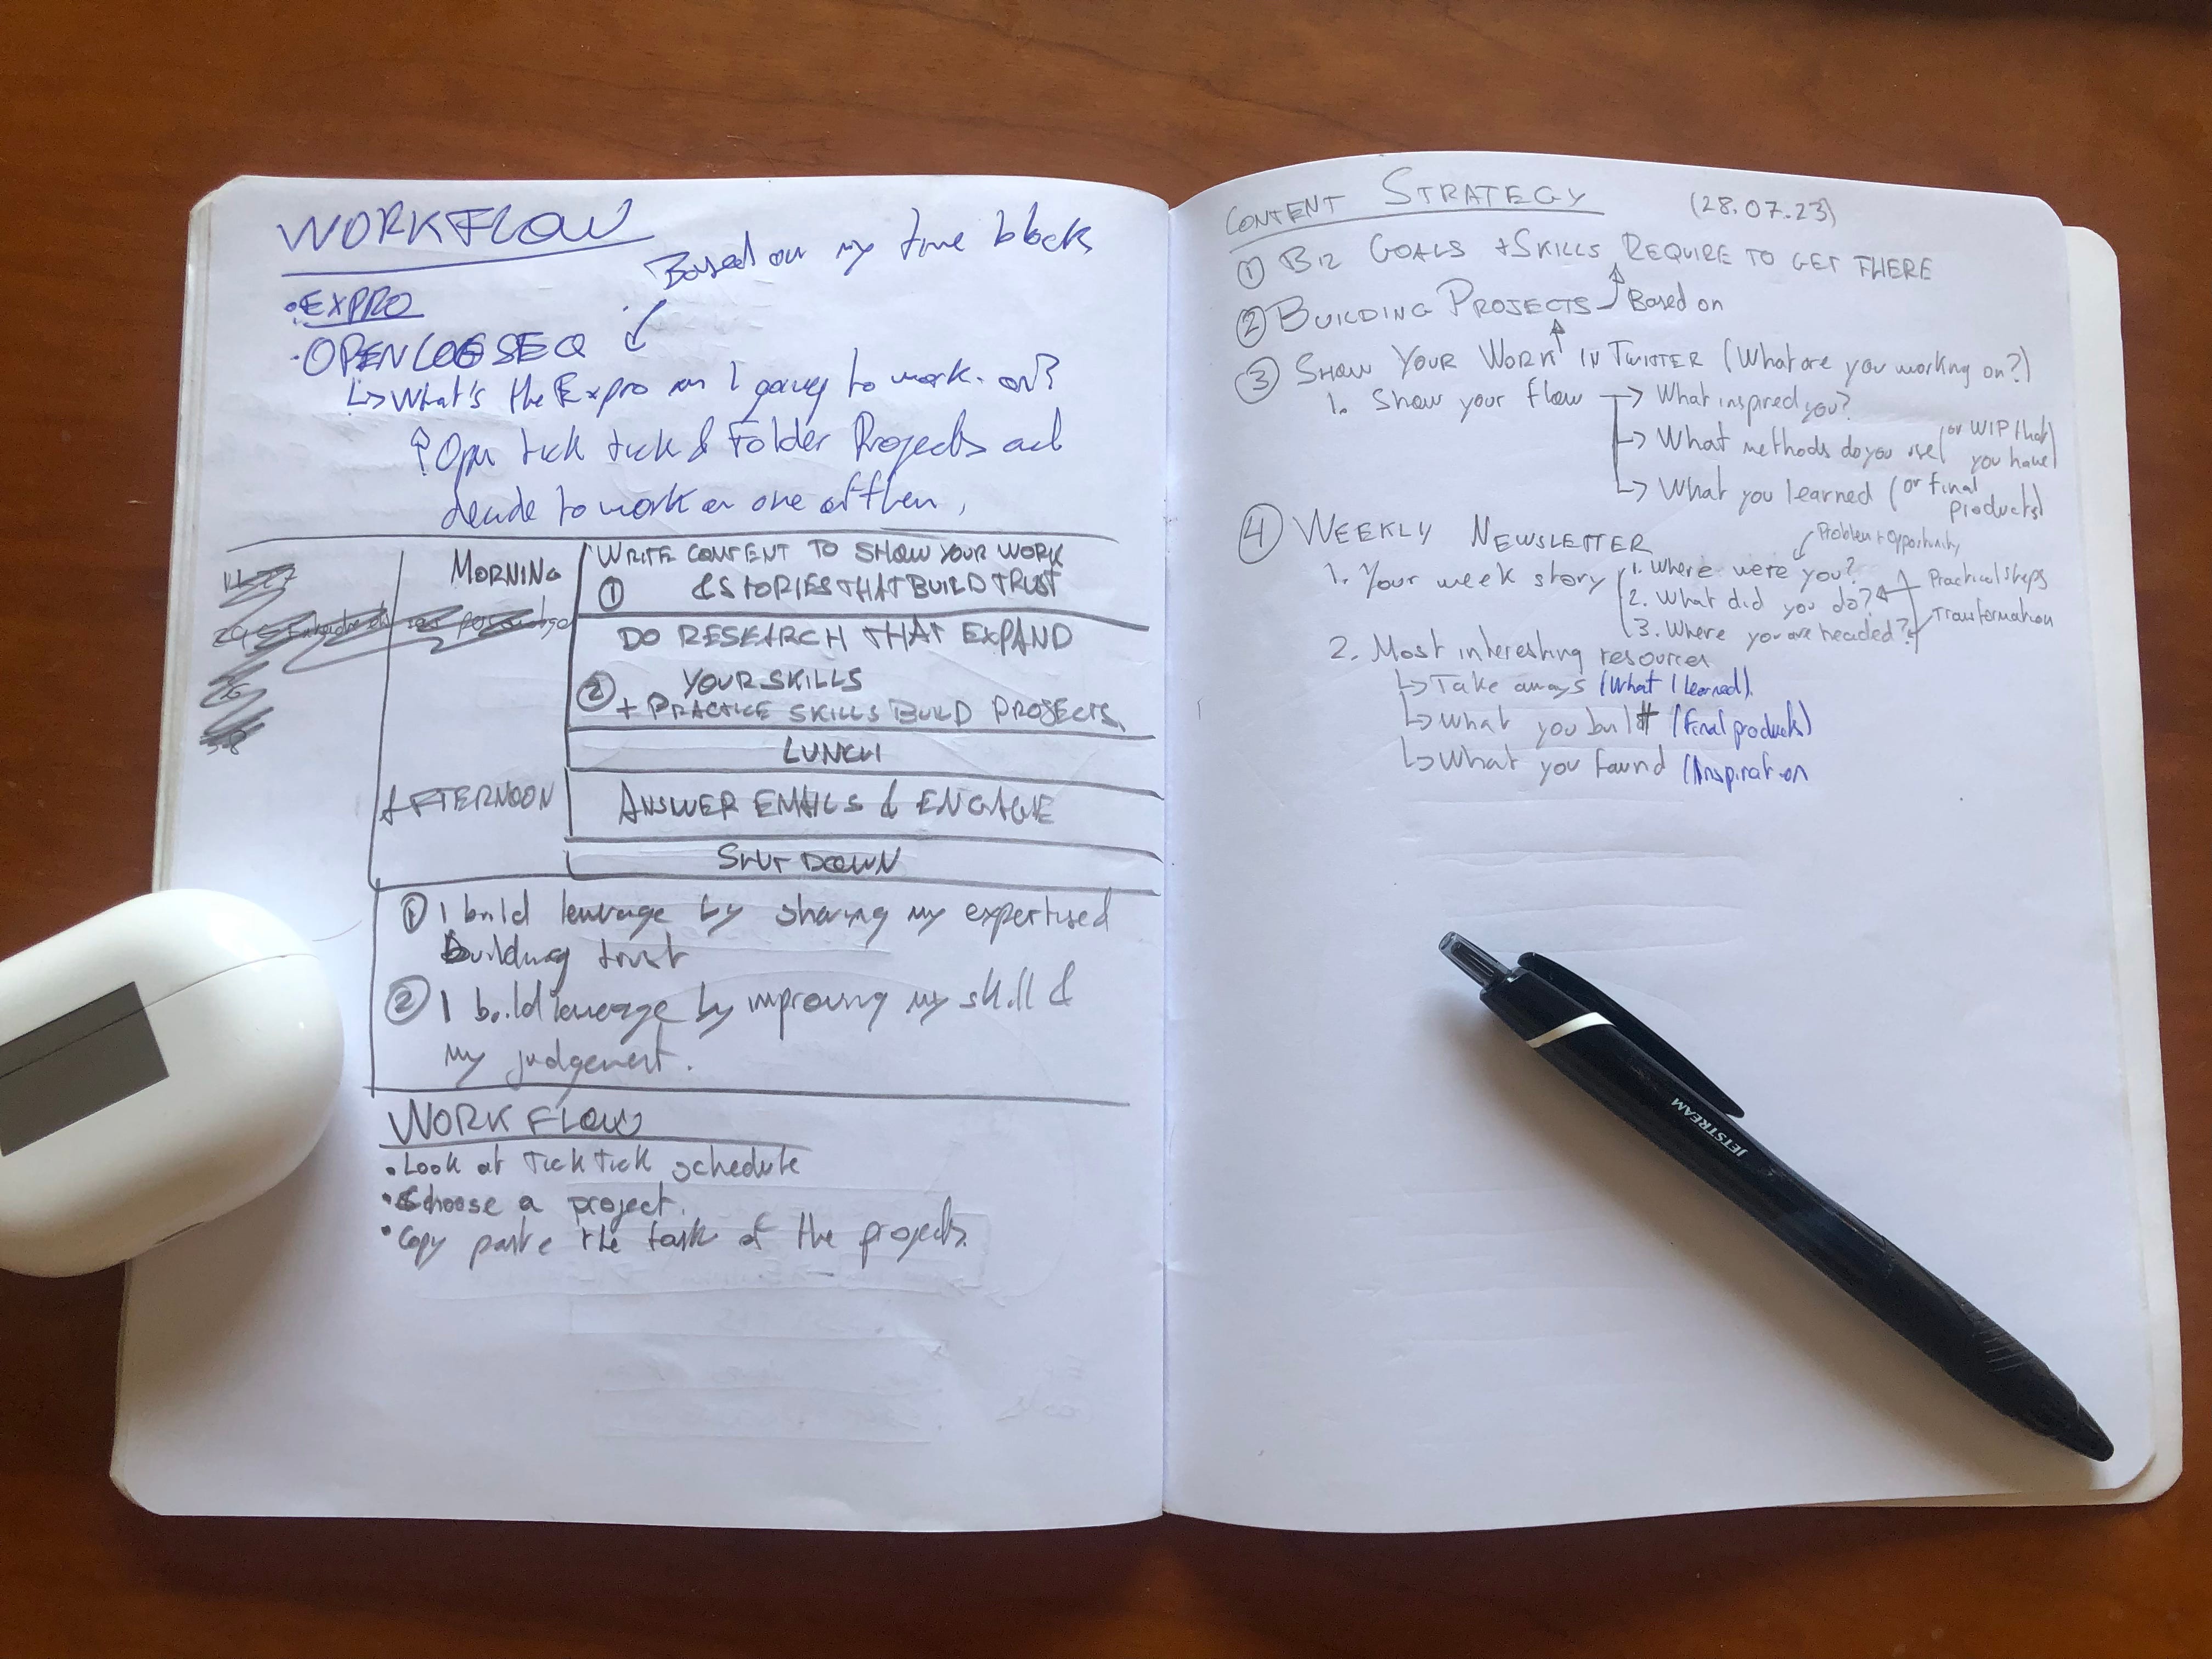 WORKFLOW
Based on my time blocks
• EXPRO
• OPEN LOGSEQ
What's the Expro am I going to work on?
Open tick tick & Folder Projects and
decide to work on one of then,
MORNING
WRITE CONTENT TO SHOW YOUR WORK
① & STORIES THAT BUILD TRUST
DO RESEARCH THAT EXPAND
② YOUR SKILLS
+ PRACTICE SKILLS BUILD PROJECTS
LUNCH
AFTERNOON
ANSWER EMAILS & ENGAGE
SHUT DOWN
① I build leverage by sharing my expertised
building trust
② I build leverage by improving my skill &
my judgement.
WORK FLOW
• Look at Tick Tick schedule
• Choose a project.
• Copy paste the task of the projects.
CONTENT STRATEGY (28.07.23)
① BIZ GOALS + SKILLS REQUIRE TO GET THERE
② BUILDING PROJECTS Based on
③ SHOW YOUR WORK IN TWITTER (What are you working on?)
1. Show your flow → What inspired you?
→ What methods do you use (or WIP that
you have)
→ What you learned (or final
products)
④ WEEKLY NEWSLETTER
Problem + Opportunity
1. Your week story
1. Where were you?
2. What did you do?
Practical steps
3. Where you are headed?
Transformation
2. Most interesting resources
↳ Take aways (What I learned)
↳ What you built (Final products)
↳ What you found (Inspiration
JETSTREAM